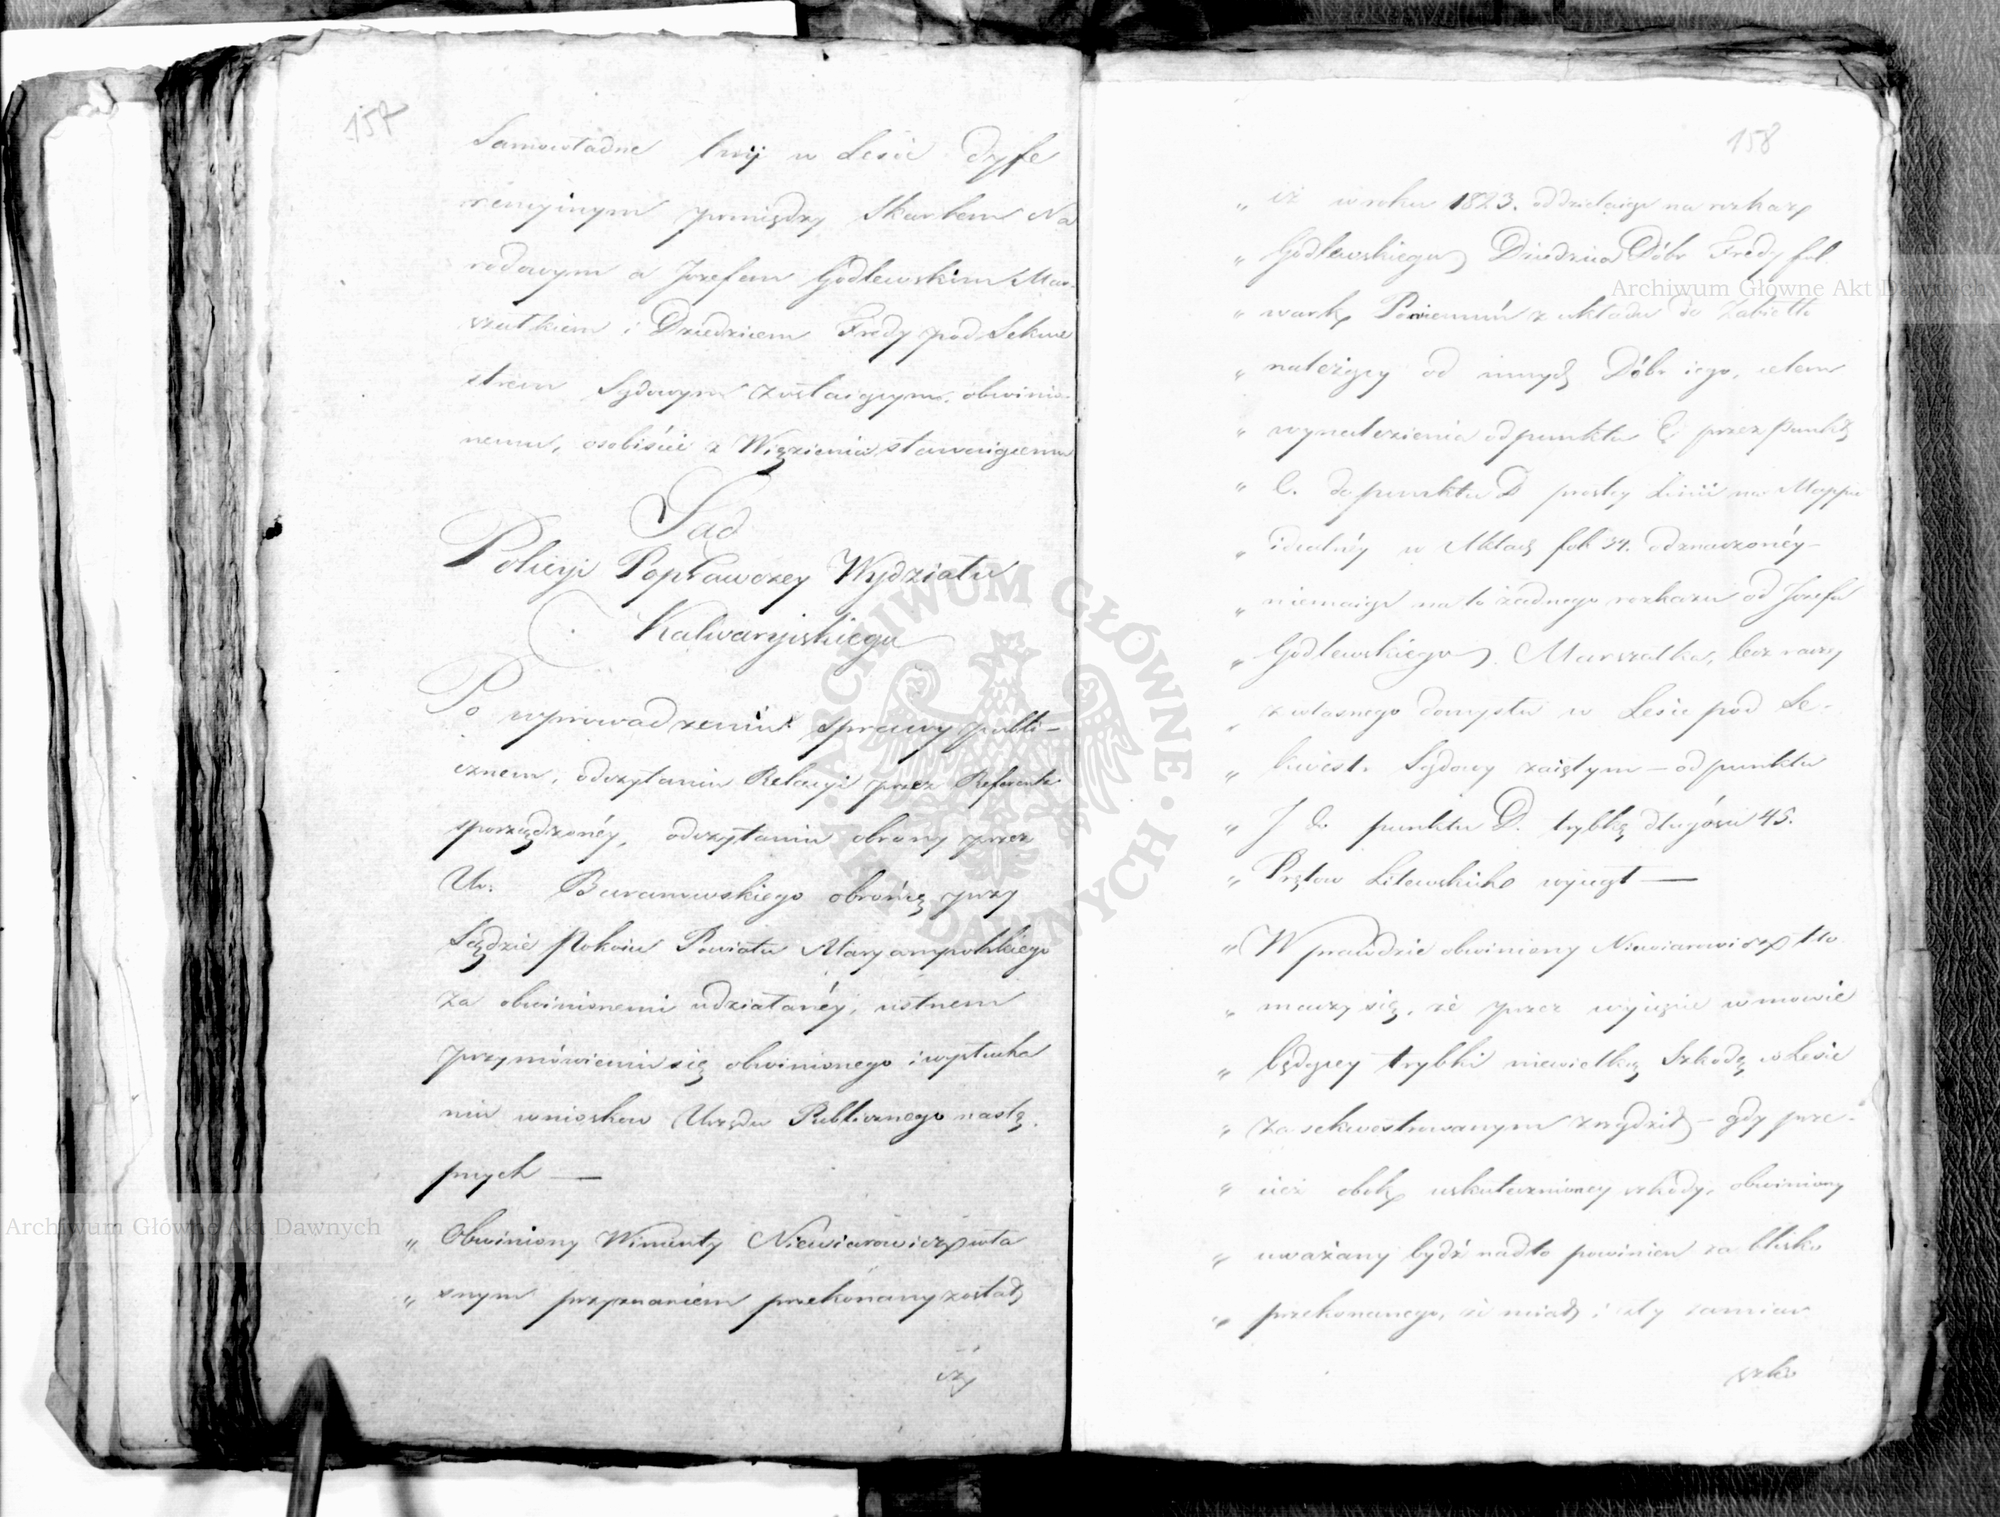 157
Samowładne linij w Lesie dyffe
rencyinym pomiędzy Skarbem Na
rodowym a Jozefem Godlewskim Mar-
szałkiem i Dziedzicem Fredy pod Sekwe
strem Sądowym zostaiącym, obwinio-
nemu, osobiście z Więzienia stawaiącemu
Sąd
Policyi Poprawczey Wydziału
Kalwaryiskiego
Po wprowadzeniu sprawy publi-
cznem, odczytaniu Relacyi przez Referenta
sporządzonéy, odczytaniu obrony przez
Ur. Baranowskiego obrońcę przy
Sądzie Pokoiu Powiatu Maryampolskiego
za obwinionemi udziałanéy, ustnem
przymówieniu się obwinionego i wysłucha
niu wniosków Urzędu Publicznego nastę-
pnych —
„ Obwiniony Wincenty Niewiarowicz wła
„ snym przyznaniem przekonany został
iż
158
„ iż w roku 1823. oddzielaiąc na rozkaz
„ Godlewskiego Dziedzica Dóbr Fredy fol
„ wark Poniemuń z układu do Zabiełło
„ należący od innych Dóbr iego, celem
„ wynalezienia od punktu C przez punkt
„ C. do punktu D prostey Linii na Mappie
„ idealnéy w Aktach fol: 34. odznaczonéy —
„ niemaiąc na to żadnego rozkazu od Jozefa
„ Godlewskiego Marszałka, lecz raczey
„ z własnego domysłu w Lesie pod Se-
„ kwestr Sądowy zaiętym — od punktu
„ J do punktu D. trybkę długości 45.
„ Prętow Litewskich wyciął —
„ Wprawdzie obwiniony Niewiarowicz tło
„ maczy się, że przez wycięcie w mowie
„ będącey trybki niewielką Szkodę w Lesie
„ zasekwestrowanym zrządził — gdy prze-
„ cież obok uskutecznioney szkody, obwiniony
„ uważany bydź nadto powinien za blisko
„ przekonanego, że miał i zły zamiar
szko
Archiwum Główne Akt Dawnych
Archiwum Główne Akt Dawnych
ARCHIWUM GŁÓWNE AKT DAWNYCH